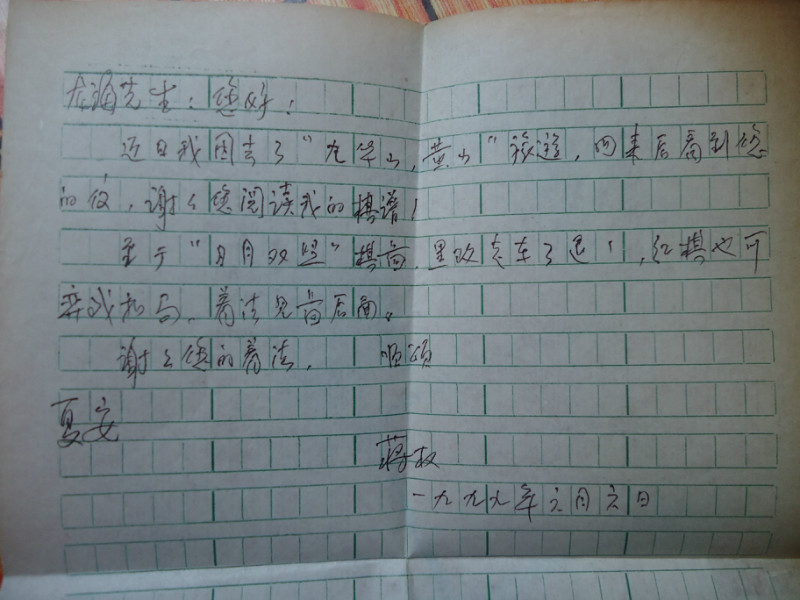 先生:您好!
近日我因去了"九华山,黄山"旅游,回来后看到您
的信,谢谢您阅读我的棋谱!
至于"日月双照"棋局,黑改走车7退1,红棋也可
弈成和局,着法见
谢谢您的着法, 顺颂
夏安
蒋权
一九九九年六月六日